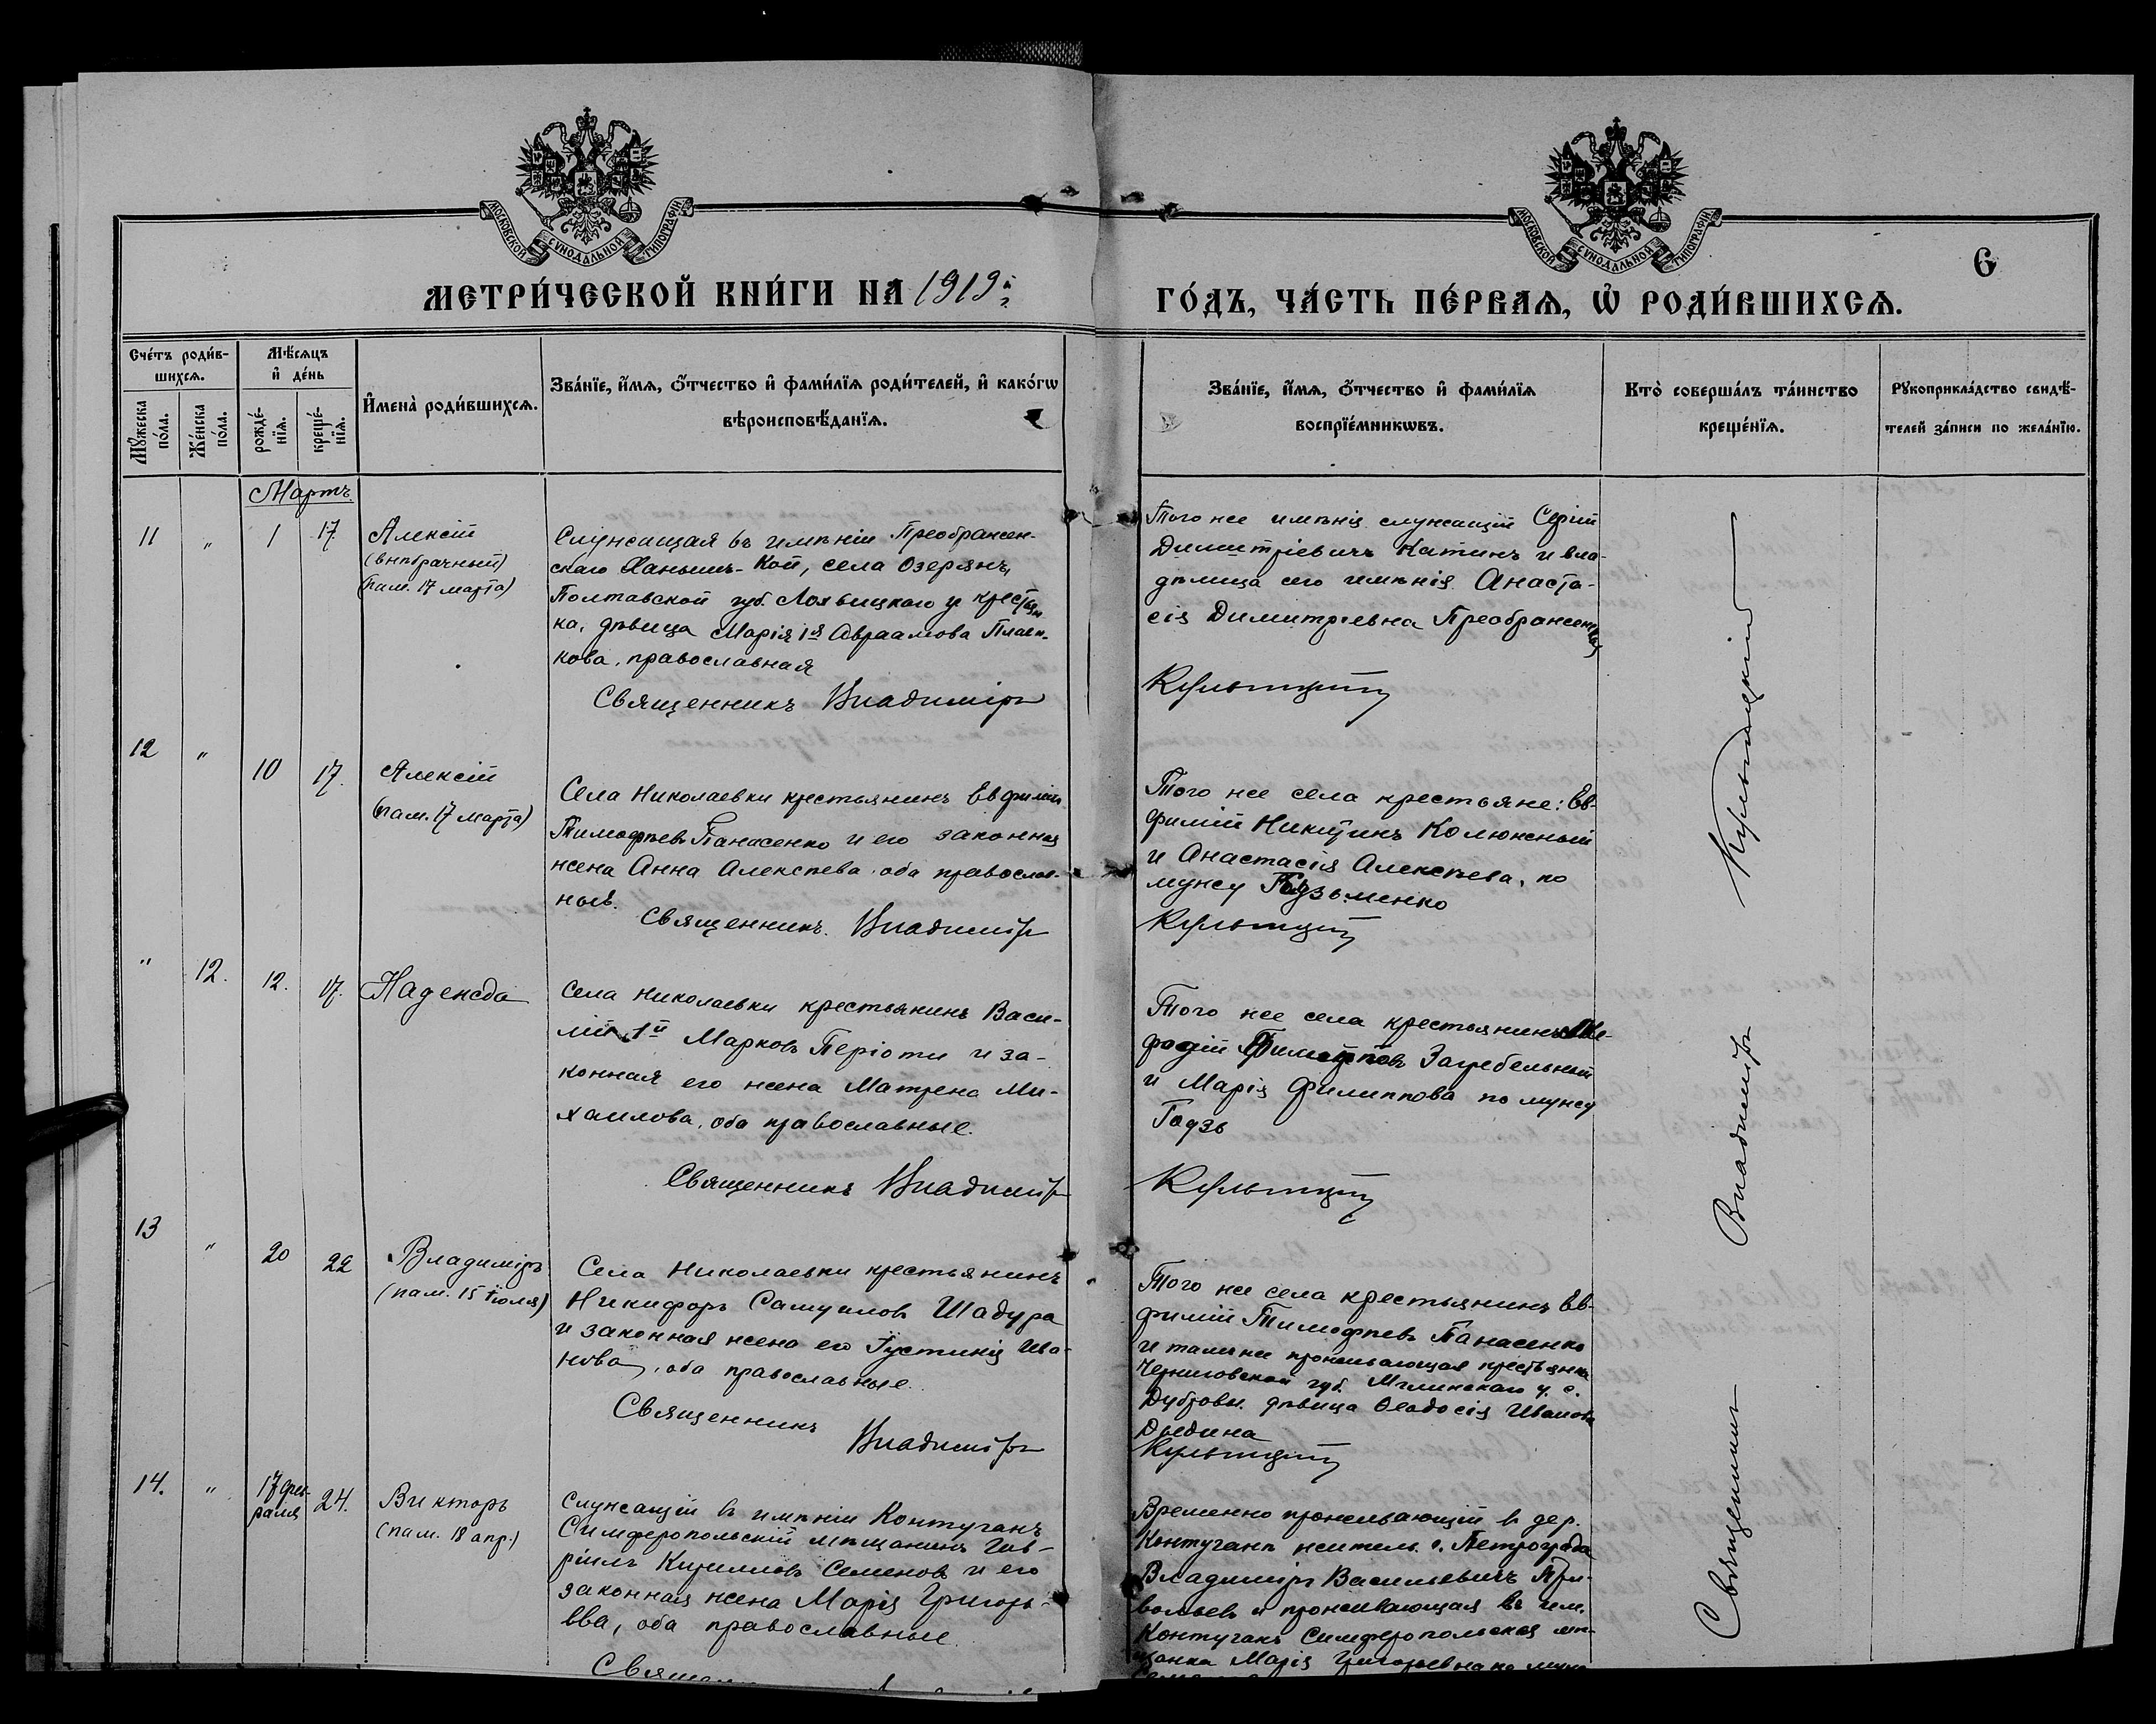 МОСКОВСКОЙ СѴНОДАЛЬНОЙ ТИПОГРАФІИ
МОСКОВСКОЙ СѴНОДАЛЬНОЙ ТИПОГРАФІИ
6
МЕТРИ́ЧЕСКОЙ КНИ́ГИ НА 1919й
ГО́ДЪ, ЧА́СТЬ ПЕ́РВАѦ, Ѡ҆ РОДИ́ВШИХСѦ.
Сче́тъ роди́в-
шихсѧ.
Мꙋ́жеска по́ла.
Же́нска по́ла.
Мѣ́сѧцъ
и҆ де́нь
рожде́-
нїѧ.
креще́-
нїѧ.
И҆мена̀ роди́вшихсѧ.
Зва́нїе, и҆́мѧ, ѻ҆́тчество и҆ фами́лїѧ роди́телей, и҆ како́гѡ
вѣроисповѣ́данїѧ.
Зва́нїе, и҆́мѧ, ѻ҆́тчество и҆ фами́лїѧ
воспрїе́мникѡвъ.
Кто̀ соверша́лъ та́инство
креще́нїѧ.
Рꙋкоприкла́дство свидѣ́-
телей за́писи по жела́нїю.
Мартъ
11 " 1 17
Алексій
(внѣбрачный)
(пам. 17 марта)
Служащая въ имѣніи Преображен-
скаго Ханышъ-Кой, села Озерянъ,
Полтавской губ. Лохвицкаго у крестьян
ка, дѣвица Марія 1я Авраамова Плаен-
кова, православная
Священникъ Владиміръ
Того же имѣнія служащій Сергій
Димитріевичъ Катинъ и вла-
дѣлица сего имѣнія Анаста-
сія Димитріевна Преображенская
Кульчицкій
12 " 10 17.
Алексій
(пам. 17 марта)
Села Николаевки крестьянинъ Евфимій
Тимофѣевъ Панасенко и его законная
жена Анна Алексѣева, оба православ-
ные.
Священникъ. Владиміръ
Того же села крестьяне: Ев-
фимій Никитинъ Колюжный
и Анастасія Алексѣева, по
мужу Гузьменко
Кульчицкій
" 12. 12. 17.
Надежда
Села Николаевки крестьянинъ Васи-
лій 1й Марковъ Періоти и за-
конная его жена Матрена Ми-
хаилова, оба православные.
Священникъ Владиміръ
Того же села крестьянинъ Ме-
фодій Загребельный
и Марія Филиппова по мужу
Гадзь
Кульчицкій
13 " 20 22
Владиміръ
(пам. 15 Іюля)
Села Николаевки крестьянинъ
Никифоръ Самуиловъ Шадура
и законная жена его Іустинія Ива-
нова, оба православные.
Священникъ
Владиміръ
Того же села крестьянинъ Ев-
фимій Тимофѣевъ Панасенко
и тамъ же проживающая крестьянка
Черниговской губ. Мглинскаго у. с.
Дубровы. дѣвица Ѳеодосія Иванова
Дѣдина
Кульчицкій
14. " 17 фев-
раля 24.
Викторъ
(пам. 18 апр.)
Служащій въ имѣніи Контуганъ
Симферопольскій мѣщанинъ Гав-
ріилъ Кирилловъ Семеновъ и его
законная жена Марія Григорь-
ева, оба православные.
Временно проживающій въ дер.
Контуганъ житель г. Петрограда
Владиміръ Васильевичъ При-
вольевъ и проживающая въ им.
Контуганъ Симферопольская мѣ-
щанка Марія Григорьевна по мужу
Священникъ Владиміръ Кульчицкій